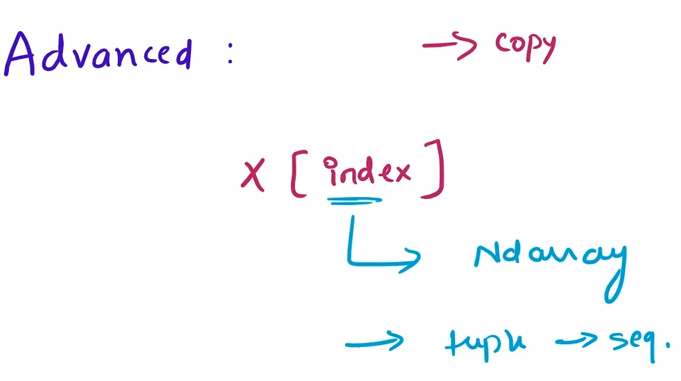 Advanced : → copy
X [ index ]
Ndarray
→ tuple → seq.